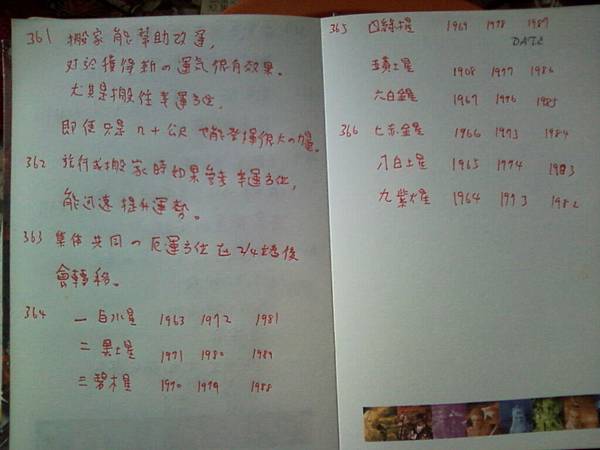 361 搬家能幫助改運,
对於獲得新の運気很有效果。
尤其是搬住幸運方位,
即使只是几十公尺 也能發揮很大の力量。
362 旅行或搬家時如果參考幸運方位,
能迅速提升運勢。
363 集体共同の厄運方位在2/4之後
會轉移。
364 一白水星 1963 1972 1981
二黒土星 1971 1980 1989
三碧木星 1970 1979 1988
365 四綠木星 1969 1978 1987
DATE
五黄土星 1908 1977 1986
六白金星 1967 1976 1985
366 七赤金星 1966 1975 1984
八白土星 1965 1974 1983
九紫火星 1964 1973 1982